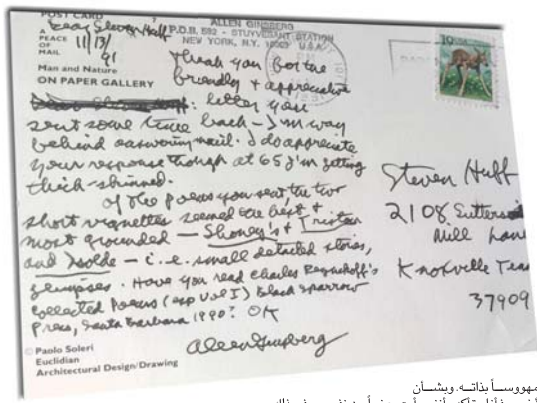 POST CARD
A
PEACE
OF
MAIL
Dear Steven Huff
11/13/91
ALLEN GINSBERG
P.O.B. 582 - STUYVESANT STATION
NEW YORK, N.Y. 10009 U.S.A.
19
Man and Nature
ON PAPER GALLERY
Thank you for the
friendly & appreciative
letter you
sent some time back - I'm way
behind answering mail. I do appreciate
your response though at 65 I'm getting
thick-skinned.
Of the poems you sent, the two
short vignettes seemed the best &
most grounded — Shoney's & Tristan
and Isolde - i.e. small detailed stories,
glimpses. Have you read Charles Reznikoff's
Collected Poems (esp Vol I) Black Sparrow
Press, Santa Barbara 1990? OK
Allen Ginsberg
Steven Huff
2108
Mill Lane
Knoxville Tenn
37909
© Paolo Soleri
Euclidian
Architectural Design/Drawing
مهووساً بذاته. وبشأن